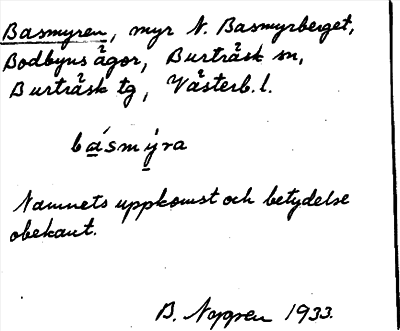 Basmyren, myr N. Basmyrberget,
Bodbyns ägor, Burträsk sn,
Burträsk tg, Västerb. l.
básmýra
Namnets uppkomst och betydelse
obekant.
B. Nygren 1933.